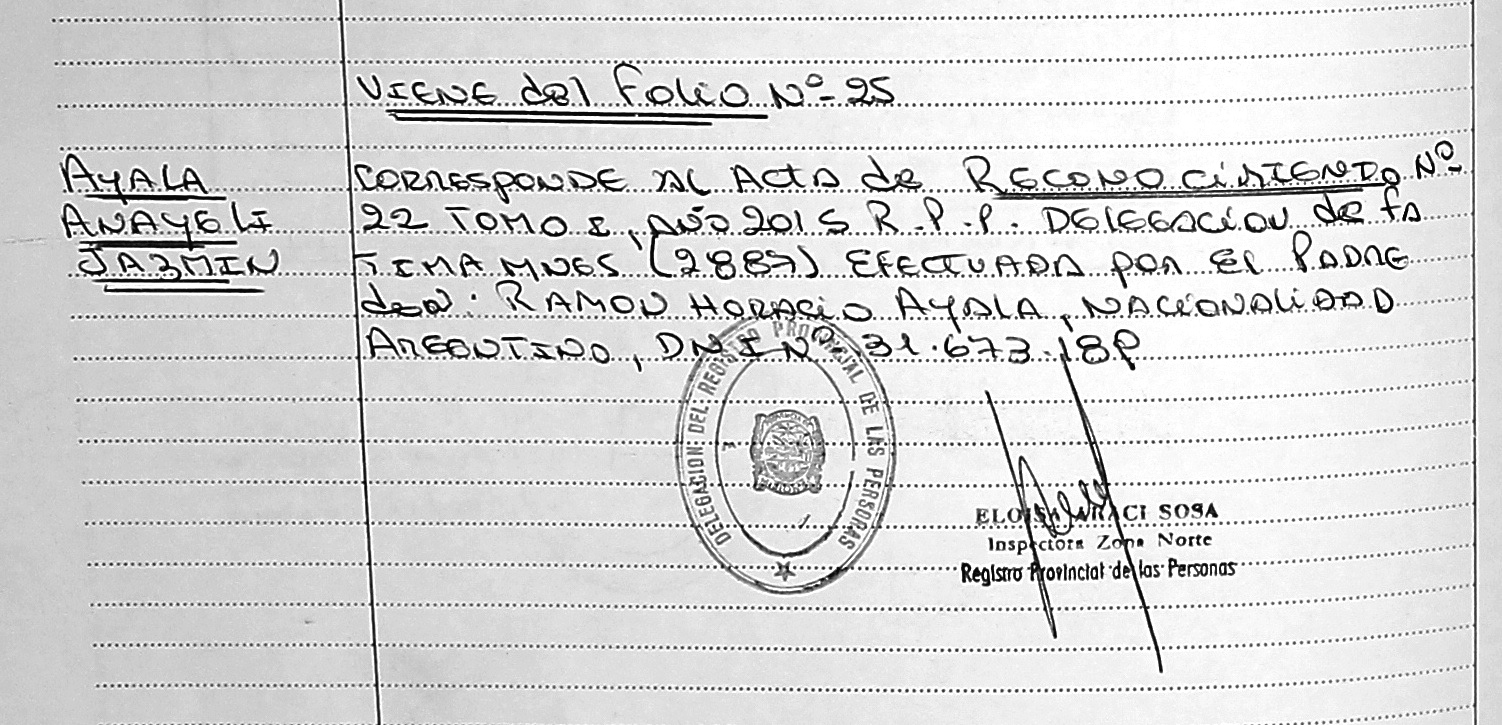 VIENE del Folio Nº 25
AYALA
ANAYELI
JAZMIN
CORRESPONDE AL ACTA de RECONOCIMIENTO Nº
22 TOMO I, AÑO 2015 R.P.P. DELEGACION de
MNES (2887) EFECTUADA POR EL PADRE
RAMON HORACIO AYALA, NACIONALIDAD
ARGENTINO, DNI Nº 31.673.18
DELEGACION DEL REGISTRO PROVINCIAL DE LAS PERSONAS
MISIONES
ELOISA ARACI SOSA
Inspectora Zona Norte
Registro Provincial de las Personas